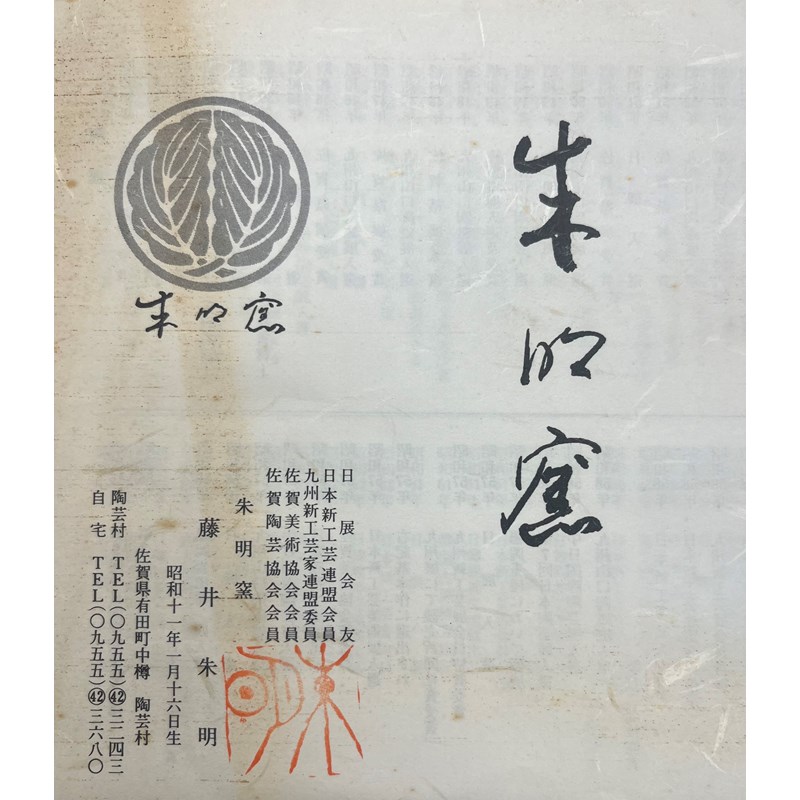 朱明窯
日展会友
日本新工芸連盟会員
九州新工芸家連盟委員
佐賀美術協会会員
佐賀陶芸協会会員
朱明窯
藤井朱明
昭和十一年一月十六日生
佐賀県有田町中樽 陶芸村
陶芸村 TEL(〇九五五)㊷三二四三
自宅 TEL(〇九五五)㊷三六八〇
朱明窯
朱明